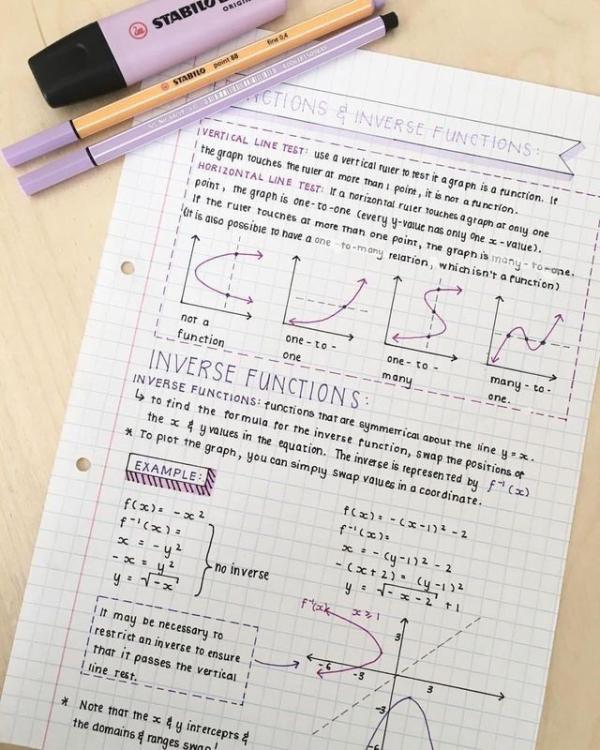 STABILO
ORIGIN
STABILO point 88 fine 0,4
CTIONS & INVERSE FUNCTIONS:
VERTICAL LINE TEST: use a vertical ruler to test if a graph is a function. If
the graph touches the ruler at more than 1 point, it is not a function.
HORIZONTAL LINE TEST: If a horizontal ruler touches a graph at only one
point, the graph is one-to-one (every y-value has only one x-value).
If the ruler touches at more than one point, the graph is many-to-one.
(It is also possible to have a one-to-many relation, which isn't a function)
not a
function
one-to-
one
one-to-
many
many-to-
one.
INVERSE FUNCTIONS:
INVERSE FUNCTIONS: functions that are symmetrical about the line y=x.
↳ to find the formula for the inverse function, swap the positions of
the x & y values in the equation. The inverse is represented by f⁻¹(x)
* To plot the graph, you can simply swap values in a coordinate.
EXAMPLE:
f(x) = -x²
f⁻¹(x) =
x = -y²
-x = y²
y = √-x
no inverse
f(x) = -(x-1)² - 2
f⁻¹(x) =
x = -(y-1)² - 2
-(x+2) = (y-1)²
y = √-x-2 + 1
It may be necessary to
restrict an inverse to ensure
that it passes the vertical
line test.
f⁻¹(x) x≥1
3
-6 -3 3
-3
-6
* Note that the x & y intercepts &
the domains & ranges swap!